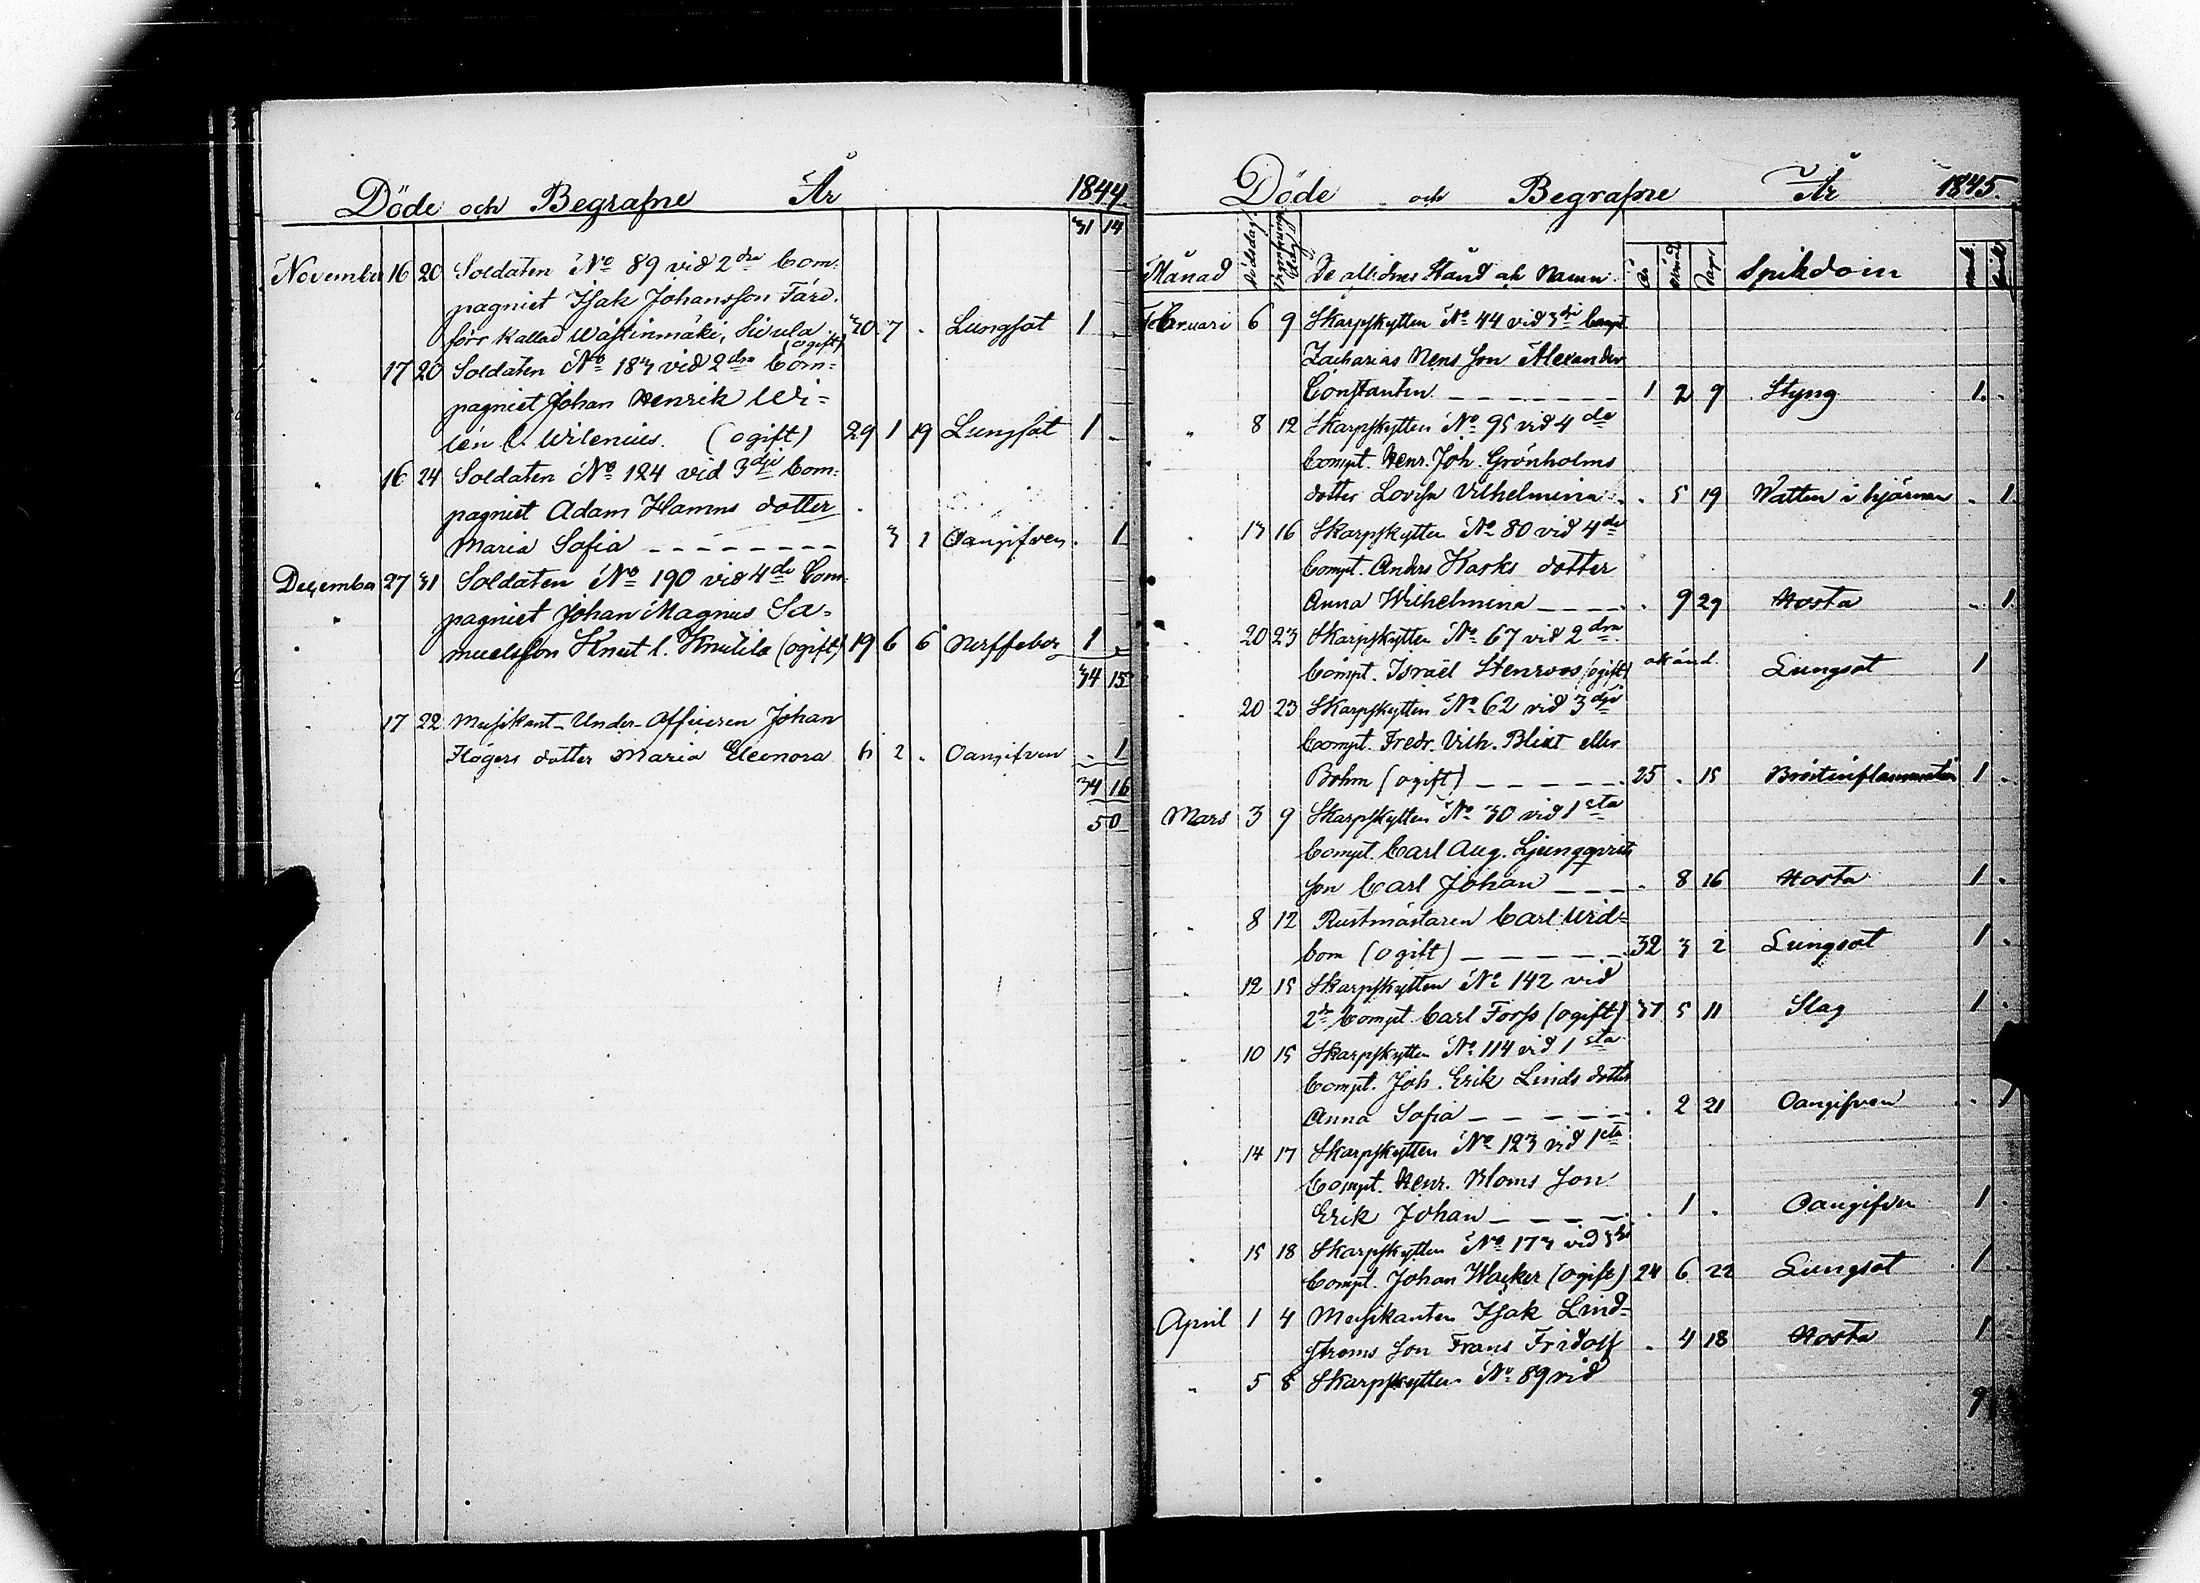 Döde och Begrafne År 1844.
31 14
November 16 20 Soldaten No 89 vid 2dra Com-
pagniet Isak Johansson Färe.
förr kallad Wästinmäki, Sivula. 30 7 . Lungsot 1 .
(ogift)
" 17 20 Soldaten No 183 vid 2dra Com=
pagniet Johan Henrik Wi=
lén l. Wilenius. (ogift) 29 1 19 Lungsot 1 .
" 16 24 Soldaten No 124 vid 3dje Com=
pagniet Adam Hamns dotter
Maria Sofia . 3 1 Oangifven . 1
December 27 31 Soldaten No 190 vid 4de Com-
" pagniet Johan Magnus Sa=
muelsson Knut l. Knutila (ogift) 19 6 6 1 .
34 15
17 22 Musikant-Under-Officeren Johan
Högers dotter Maria Eleonora 6 2 . Oangifven . 1
34 16
50
Döde och Begrafne År 1845.
Månad Dödsdag Begrafnings dag De aflidnes Stånd och Namn. År Månad Dagar Sjukdom mank. qvink.
Februari 6 9 Skarpskytten No 44 vid 3dje Compt
Zacharias Nens son Alexander
Constantin 1 2 9 Styng 1 .
" 8 12 Skarpskytten No 95 vid 4de
Compt. Henr. Joh. Grönholms
dotter Lovisa Vilhelmina . 5 19 Watten i hjärnan . 1
" 13 16 Skarpskytten No 80 vid 4de
Compt. Anders Hasks dotter
Anna Wilhelmina . 9 29 Hosta . 1
" 20 23 Skarpskytten No 67 vid 2dra
Compt. Israël Stenroos (ogift) okänd. Lungsot 1
" 20 23 Skarpskytten No 62 vid 3dje
Compt. Fredr. Vilh. Blixt eller
Bohm (ogift) 25 . 15 Bröstinflammation 1 .
Mars 3 9 Skarpskytten No 30 vid 1sta
Compt. Carl Aug. Ljungqvists
son Carl Johan . 8 16 Hosta 1 .
" 8 12 Rustmästaren Carl Wid=
bom (ogift) 32 3 2 Lungsot 1 .
" 12 15 Skarpskytten No 142 vid
2dra Compt. Carl Forss (ogift) 37 5 11 Slag 1 .
" 10 15 Skarpskytten No 114 vid 1sta
Compt. Joh. Erik Linds dotter
Anna Sofia . 2 21 Oangifven . 1
" 14 17 Skarpskytten No 123 vid 1sta
Compt. Henr. Bloms son
Erik Johan . 1 . Oangifven 1 .
" 15 18 Skarpskytten No 173 vid 3dje
Compt. Johan Wacker (ogift) 24 6 22 Lungsot 1
April 1 4 Musikanten Isak Lind=
ströms son Frans Fridolf . 4 18 Hosta 1
" 5 8 Skarpskytten No 89 vid
9